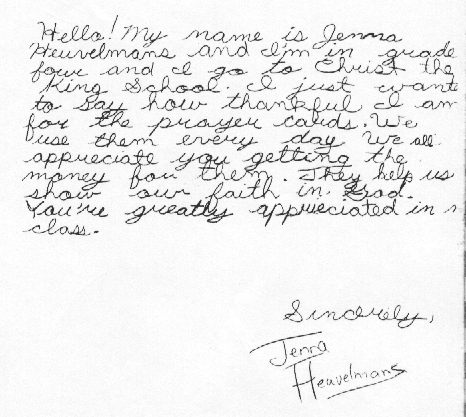 Hello! My name is Jenna
Heuvelmans and I'm in grade
four and I go to Christ the
King School. I just want
to say how thankful I am
for the prayer cards. We
use them every day We all
appreciate you getting the
money for them. They help us
show our faith in God.
You're greatly appreciated in
class.
Sincerely,
Jenna
Heuvelmans